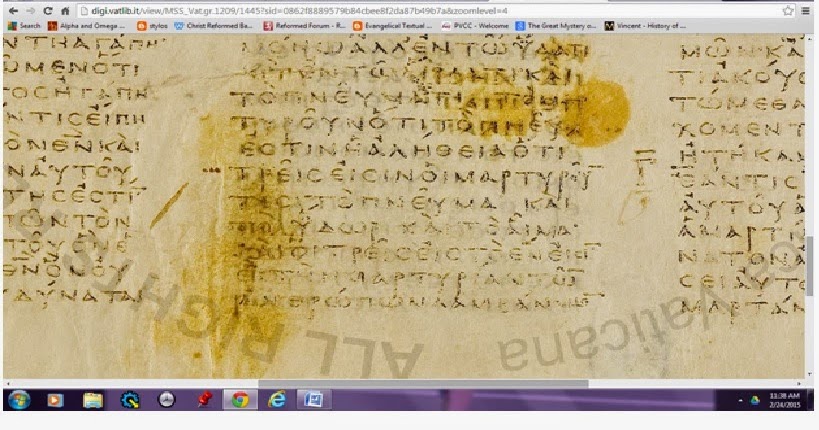 digi.vatlib.it/view/MSS_Vat.gr.1209/1445?sid=0862f8889579b84cbee8f2da87b49b7a&zoomlevel=4
Search Alpha and Omega ... stylos Christ Reformed Be... Reformed Forum - R... Evangelical Textual ... PVCC - Welcome The Great Mystery o... Vincent - History of ...
ΝΤΗΑΓΑΠΗ
ΟΜΕΝΟΤΙ
ΤΟϹΗΓΑΠΗ
ΝΤΙϹΕΙΠΗ
ΟΜΕΝΚΑΙ
ΝΑΥΤΟΥ
ΤΗϹΕϹΤΙ
ΤΟΝΤΟΝ
ΘΝΟΝΟΥ
ΥΔΥΝΑΤΑΙ
ΜΟΝΩΑΛΛΕΝΤΩΥΔΑΤΙ
ΤΟΠΝΕΥΜΑ
ΤΥΡΟΥΝΟΤΙΤΟΠΝΕΥΜΑ
ΕϹΤΙΝΗΑΛΗΘΕΙΑΟΤΙ
ΤΡΕΙϹΕΙϹΙΝΟΙΜΑΡΤΥΡΟΥ
ΤΕϹΤΟΠΝΕΥΜΑ ΚΑΙ
ΤΟΥΔΩΡΚΑΙΤΟΑΙΜΑ
ΚΑΙΟΙΤΡΕΙϹΕΙϹΤΟΕΝΕΙϹΙ
ΕΙΤΗΝΜΑΡΤΥΡΙΑΝΤΩ
ΜΩΝΚΑ
ΤΙΑΚΟΥϹ
ΤΩΜΕΘΑ
ΧΟΜΕΝΤ
ΗΤΗΚΑ
ΕΑΝΤΙϹ
ΑΥΤΟΥΑ
ΝΑΤΟΝΑ
ϹΕΙΑΥΤ
ΜΑΡΤΑΝ
ALL RIGHTS
Vaticana
11:38 AM
2/24/2015